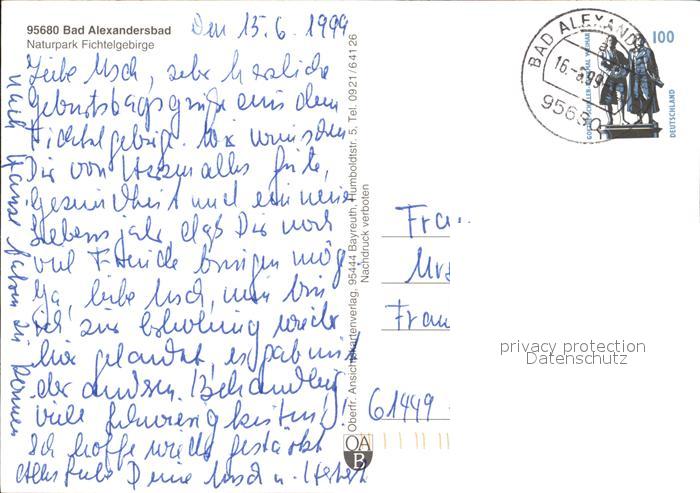 95680 Bad Alexandersbad
Naturpark Fichtelgebirge
Den 15.6.1999
Liebe Usch, sehr herzliche
Geburtstagsgrüße aus dem
Fichtelgebirge. Wir wünschen
Dir von Herzen alles Gute,
Gesundheit und ein neues
Lebensjahr, daß Dir noch
viel Freude bringen mög
Ja, liebe Usch, nun bin
ich zur Erholung wieder
hier gelandet, es gab mit
der anderen Behandlung
viele Schwierigkeiten!
Ich hoffe gestärkt
nach Hause fahren zu können
Alles Gute Deine u.
Oberfr. Ansichtskartenverlag, 95444 Bayreuth, Humboldtstr. 5, Tel. 0921/64126
Nachdruck verboten
OA
B
BAD ALEXAND
16.
99
95680
100
DEUTSCHLAND
Frau
Urs
Fran
61449
privacy protection
Datenschutz